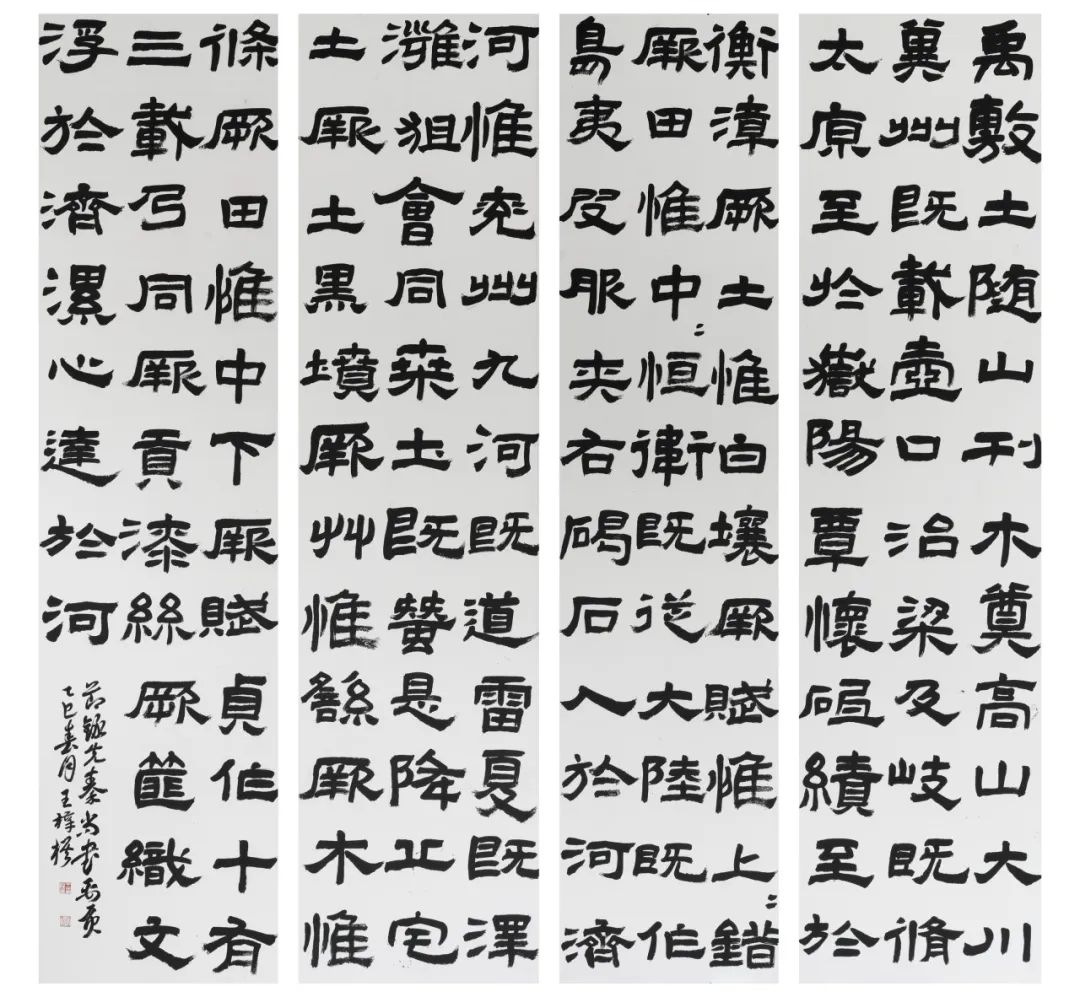 禹敷土随山刊木奠高山大川
冀州既載壺口治梁及岐既脩
太原至於嶽陽覃懷績至於
衡漳厥土惟白壤厥賦惟上〻錯
厥田惟中〻恒衛既從大陸既作
島夷皮服夾右碣石入於河濟
河惟兖州九河既道雷夏既澤
灉沮會同桑土既蠶是降丘宅
土厥土黑墳厥艸惟繇厥木惟
條厥田惟中下厥賦貞作十有
三載乃同厥貢漆絲厥篚織文
浮於濟漯心達於河
節錄先秦尚書禹貢
乙巳春月王梓